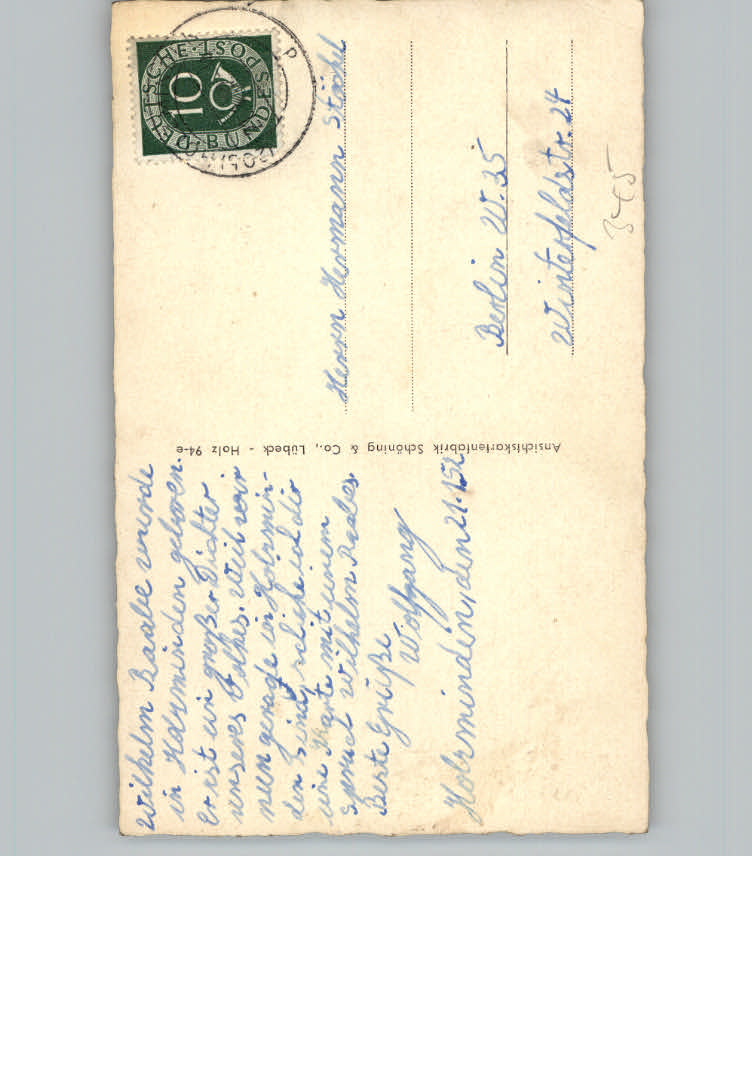 Wilhelm Raabe wurde
in Holzminden geboren.
Er ist ein großer Dichter
unseres Volkes. Weil wir
nun gerade in Holzmin-
den sind, schicke ich dir
eine Karte mit einem
Spruch Wilhelm Raabes
Beste Grüße
Wolfgang
Holzminden, den 21.1.52
Ansichtskartenfabrik Schöning & Co., Lübeck - Holz 94-e
DEUTSCHE BUNDESPOST
10
Herrn Hermann Stöckel
Berlin W. 35
Winterfeldstr. 24